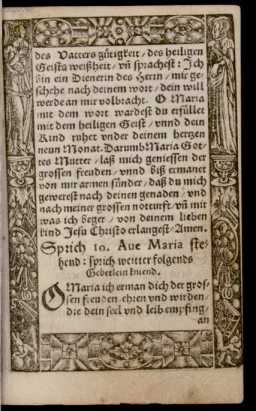 des Vatters gütigkeit / des heiligen
Geists weißheit / vn̄ sprachest : Jch
bin ein Dienerin des Herrn / mir ge-
schehe nach deinem wort / dein will
werde an mir volbracht. O Maria
mit dem wort wardest du erfüllet
mit dem heiligen Geist / vnnd dein
Kind ruhet vnder deinem hertzen
neun Monat. Darumb Maria Got-
tes Mutter / laß mich geniessen der
grossen freuden / vnnd biß ermanet
von mir armen sünder / daß du mich
gewerest nach deinen genaden / vnd
nach meiner grossen notturft / vn̄ mit
was ich beger / von deinem lieben
kind Jesu Christo erlangest / Amen.
Sprich 10. Aue Maria ste-
hend : sprich weitter folgends
Gebetlein kniend.
O Maria ich erman dich der gros-
sen freuden / ehren vnd wirden /
die dein seel vnd leib empfing /
an